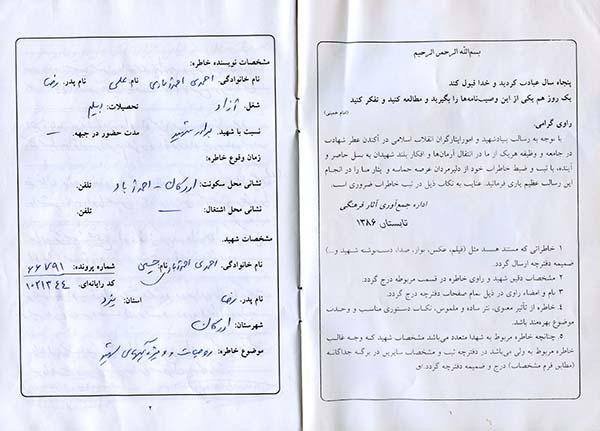 بسم‌الله الرحمن الرحیم
پنجاه سال عبادت کردید و خدا قبول کند
یک روز هم یکی از این وصیت‌نامه‌ها را بگیرید و مطالعه کنید و تفکر کنید
(امام خمینی)
راوی گرامی،
با توجه به رسالت بنیادشهید و امورایثارگران انقلاب اسلامی در آکندن عطر شهادت
در جامعه و وظیفه هریک از ما در انتقال آرمان‌ها و افکار بلند شهیدان به نسل حاضر و
آینده، با ثبت و ضبط خاطرات خود از دلیرمردان عرصه حماسه و ایثار ما را در انجام
این رسالت عظیم یاری فرمائید. عنایت به نکات ذیل در ثبت خاطرات ضروری است.
اداره جمع‌آوری آثار فرهنگی
تابستان ۱۳۸۶
۱ خاطراتی که مستند هستند مثل (فیلم، عکس، نوار، صدا، دست‌نوشته شهید و...)
ضمیمه دفترچه ارسال گردد.
۲ مشخصات دقیق شهید و راوی خاطره در قسمت مربوطه درج گردد.
۳ نام و امضاء راوی در ذیل تمام صفحات دفترچه درج گردد.
۴ خاطره از تأثیر معنوی، نثر ساده و ملموس، نکات دستوری مناسب و وحدت
موضوع بهره‌مند باشد.
۵ چنانچه خاطره مربوط به شهدا متعدد می‌باشد مشخصات شهید که وجه غالب
خاطره مربوط به ولی می‌باشد در دفترچه ثبت و مشخصات سایرین در برگه جداگانه
(مطابق فرم مشخصات) درج و ضمیمه دفترچه گردد.
مشخصات نویسنده خاطره:
نام خانوادگی: احمدی احمدآبادی نام: علی نام پدر: رضا
شغل: آزاد تحصیلات: دیپلم
نسبت با شهید: برادر شهید مدت حضور در جبهه: –
زمان وقوع خاطره:
نشانی محل سکونت: اردکان - احمدآباد تلفن:
نشانی محل اشتغال: – تلفن:
مشخصات شهید:
نام خانوادگی: احمدی احمدآبادی نام: حسین شماره پرونده: ۶۶۷۹۱
کد رایانه‌ای: ۱۰۲۱۳۴۴
نام پدر: رضا استان: یزد
شهرستان: اردکان
موضوع خاطره: روحیات و ویژگیهای شهید
۲